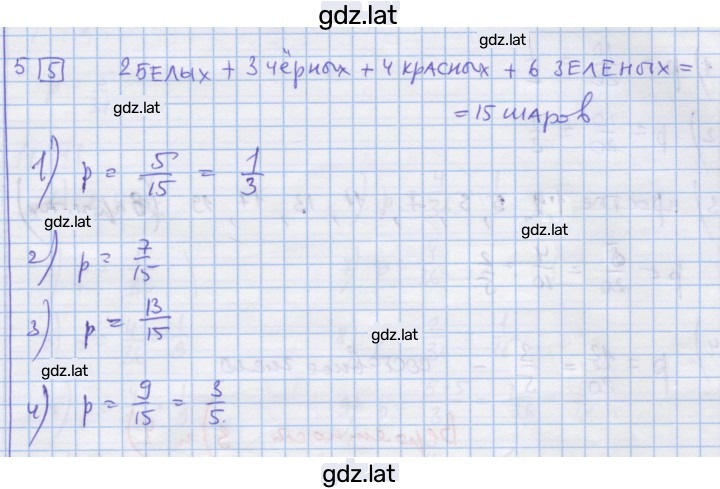 gdz.lat
gdz.lat
5 5 2 БЕЛЫХ + 3 ЧЁРНЫХ + 4 КРАСНЫХ + 6 ЗЕЛЕНЫХ =
gdz.lat
= 15 ШАРОВ
1) p = 5/15 = 1/3
gdz.lat
gdz.lat
2) p = 7/15
3) p = 13/15
gdz.lat
gdz.lat
4) p = 9/15 = 3/5
gdz.lat